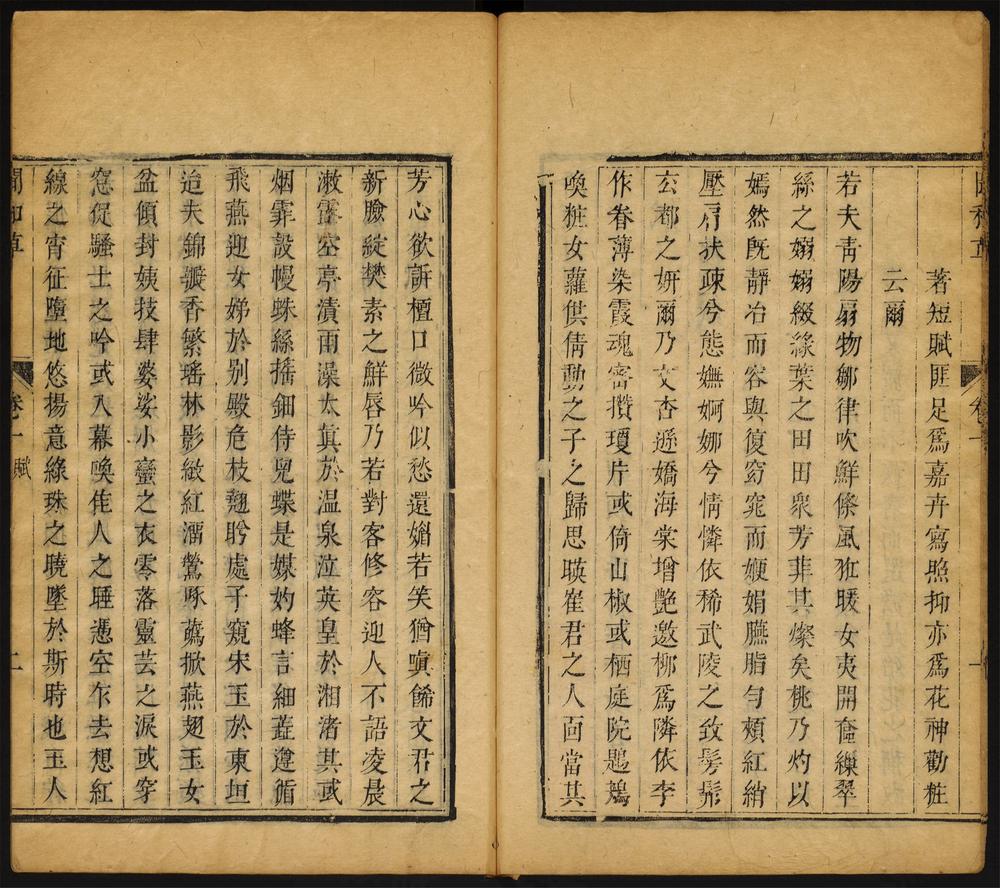 著短賦匪足爲嘉卉寫照抑亦爲花神勸粧
云爾
若夫靑陽扇物鄒律吹鮮條風狂暖女夷開奩繅翠
絲之嫋嫋綴綠葉之田田衆芳菲其燦矣桃乃灼以
嫣然旣靜冶而容與復窈窕而㛹娟臙脂勻頰紅綃
壓肩扶疎兮態嫵婀娜兮情憐依稀武陵之致髣髴
玄都之姸爾乃文杏遜嬌海棠增艶邀柳爲隣依李
作眷薄染霞魂密攢瓊片或倚山椒或栖庭院鶗鴂
喚粧女蘿供倩動之子之歸思暎崔君之人面當其
芳心欲訴檀口微吟似愁還媚若笑猶嗔餙文君之
新臉綻樊素之鮮唇乃若對客修容迎人不語凌晨
漱露空亭漬雨澡太眞於温泉泣英皇於湘渚其或
烟霏設幔蛛絲搖鈿侍兒蝶是媒妁蜂言細蓝遵循
飛燕迎女娣於别殿危枝翹聆處子窺宋玉於東垣
迨夫錦瓣香繁瑤林影緻紅溜鶯啄蔫掀燕翅玉女
盆傾封姨技肆婆娑小蠻之衣零落靈芸之淚或穿
窓促騷士之吟或入幕喚佳人之睡憑空乍去想紅
線之宵征墮地悠揚意綠珠之曉墜於斯時也玉人
卷一 賦 二